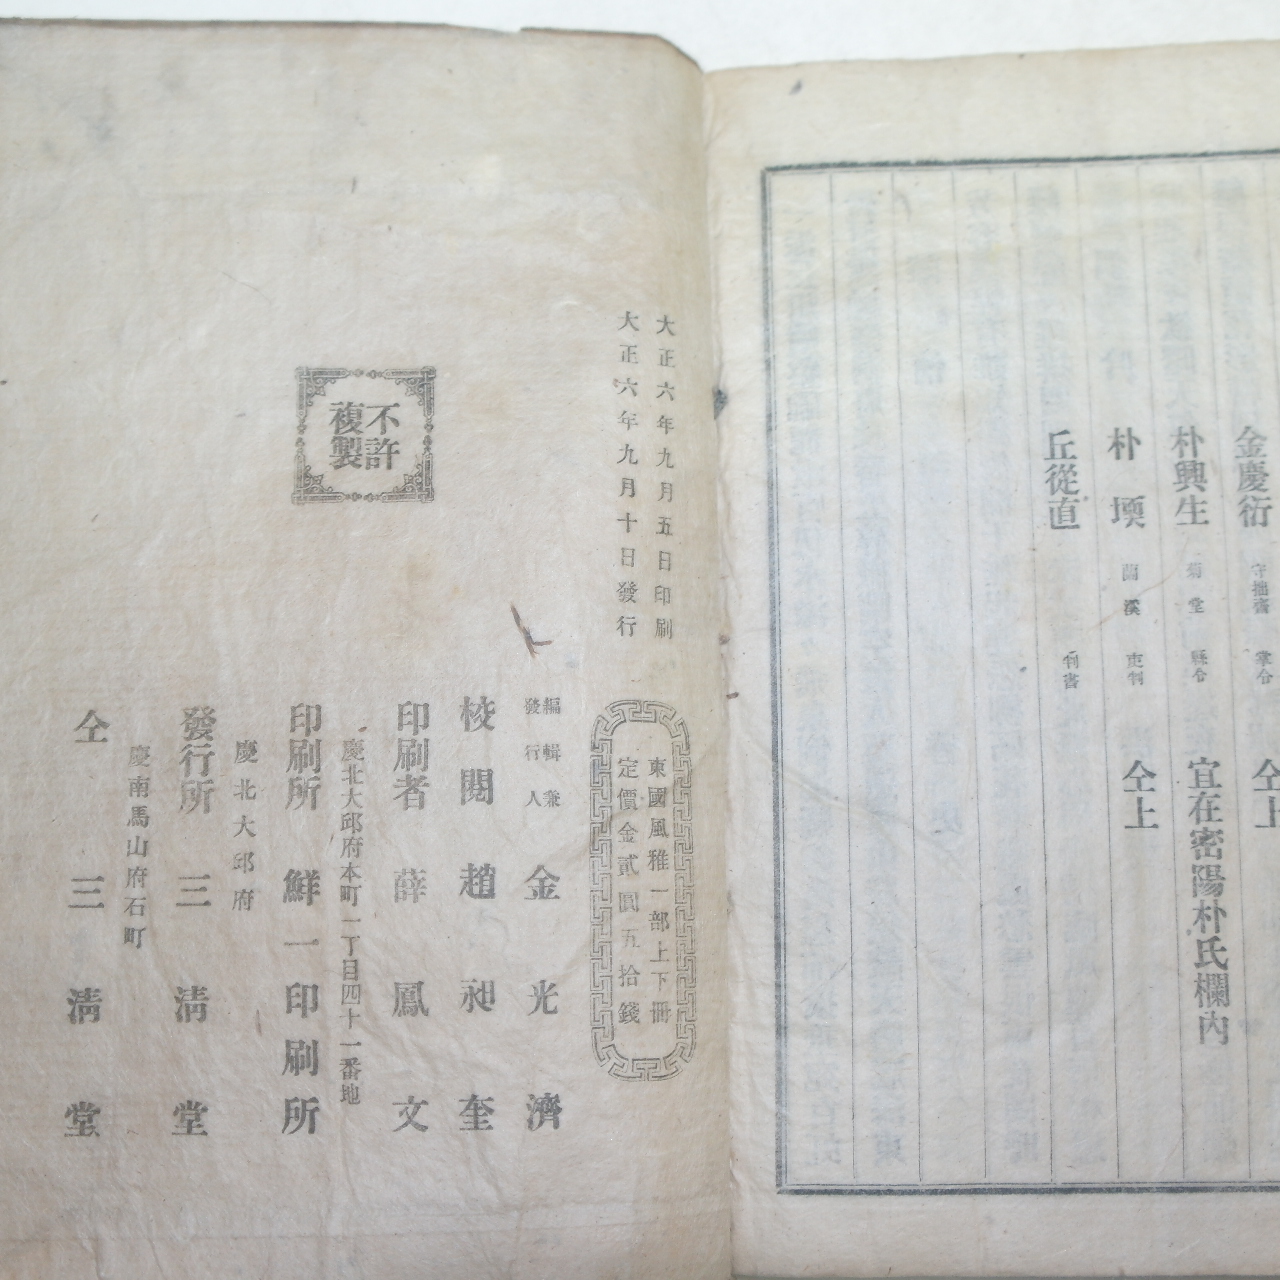 金慶衍 守拙齋 掌令 仝上
朴興生 菊堂 縣令 宜在密陽朴氏欄內
朴堧 蘭溪 吏判 仝上
丘從直 判書
大正六年九月五日印刷
大正六年九月十日發行
東國風雅一部上下冊
定價金貳圓五拾錢
不許
複製
編輯兼
發行人 金光濟
校閱 趙昶奎
印刷者 薛鳳文
慶北大邱府本町二丁目四十一番地
印刷所 鮮一印刷所
慶北大邱府
發行所 三淸堂
慶南馬山府石町
仝 三淸堂